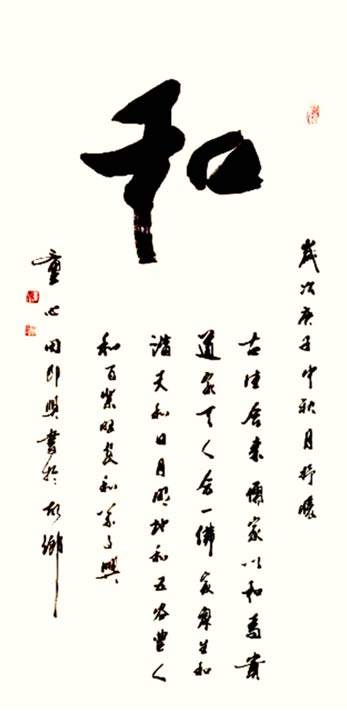 和
岁次庚子中秋月抒怀
古往今来儒家以和为贵
道家天人合一佛家众生和
谐天和日月明地和五谷丰人
和百业旺家和万事兴
童心田即兴书于故乡